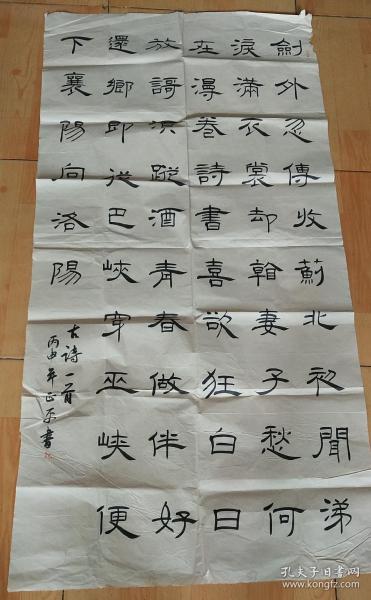 劍外忽傳收薊北初聞涕
淚滿衣裳却看妻子愁何
在漫卷詩書喜欲狂白日
放謌須蹤酒青春做伴好
還鄉即從巴峽穿巫峽便
下襄陽向洛陽
古詩一首
丙申年正書
孔夫子旧书网
www.kongfz.com